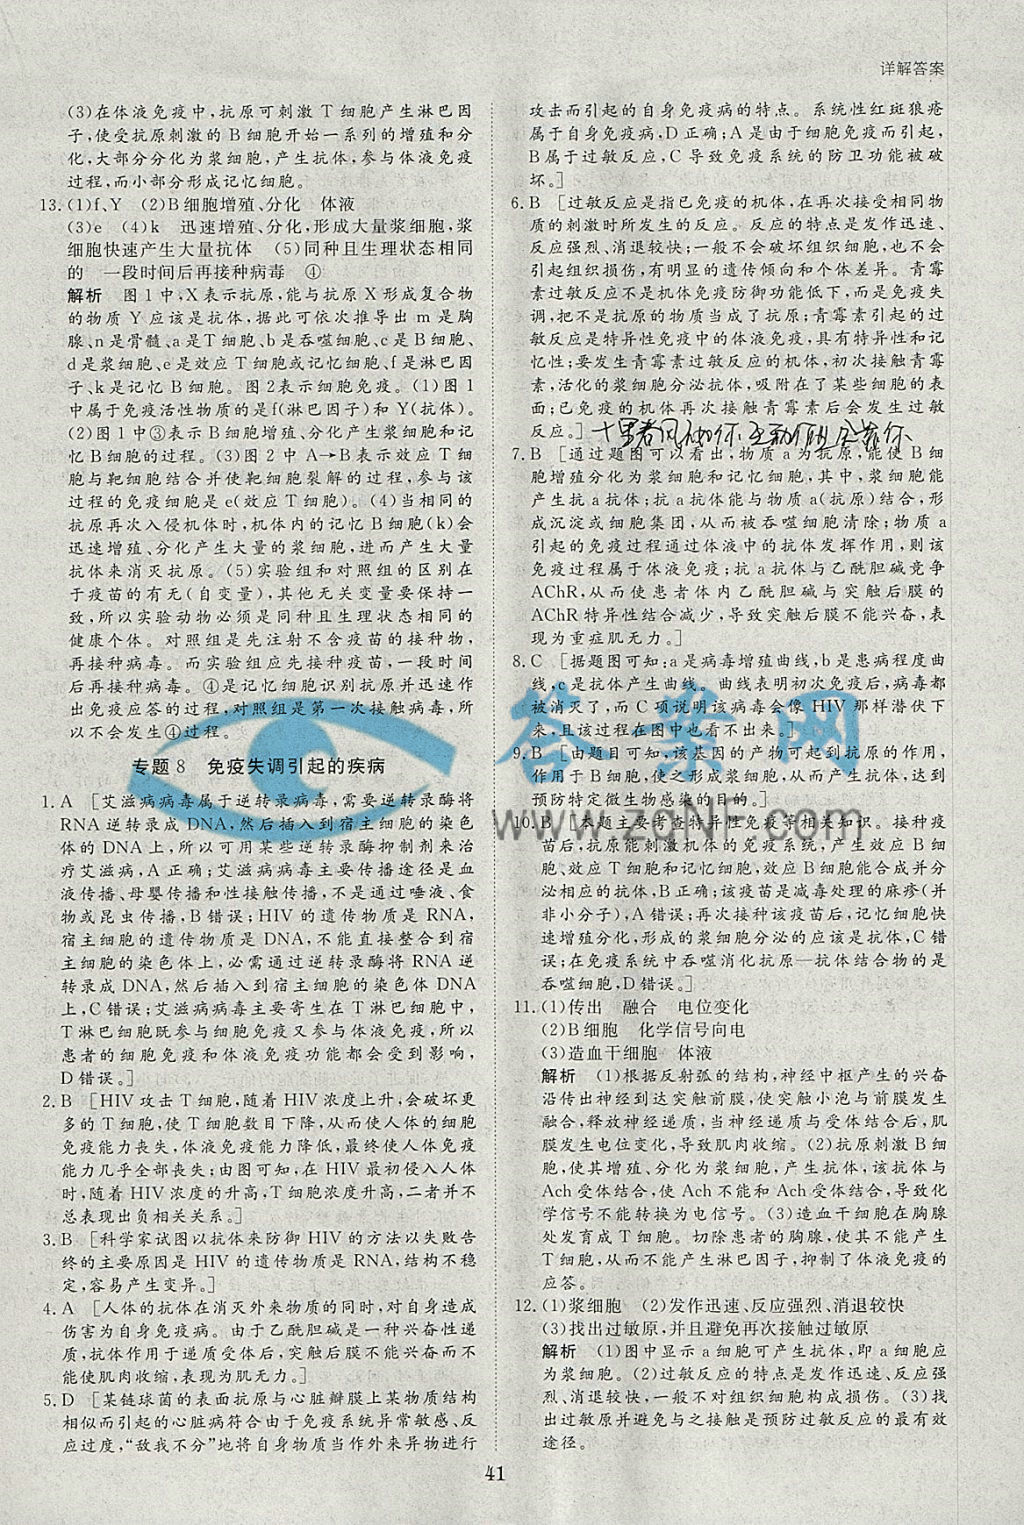 详解答案
(3)在体液免疫中,抗原可刺激T细胞产生淋巴因
子,使受抗原刺激的B细胞开始一系列的增殖和分
化,大部分分化为浆细胞,产生抗体,参与体液免疫
过程,而小部分形成记忆细胞。
13.(1)f、Y (2)B细胞增殖、分化 体液
(3)e (4)k 迅速增殖、分化,形成大量浆细胞,浆
细胞快速产生大量抗体 (5)同种且生理状态相同
的 一段时间后再接种病毒 ④
解析 图1中,X表示抗原,能与抗原X形成复合物
的物质Y应该是抗体,据此可依次推导出m是胸
腺、n是骨髓、a是T细胞、b是吞噬细胞、c是B细胞、
d是浆细胞、e是效应T细胞或记忆细胞、f是淋巴
因子、k是记忆B细胞。图2表示细胞免疫。(1)图1
中属于免疫活性物质的是f(淋巴因子)和Y(抗体)。
(2)图1中③表示B细胞增殖、分化产生浆细胞和记
忆B细胞的过程。(3)图2中A→B表示效应T细
胞与靶细胞结合并使靶细胞裂解的过程,参与该
过程的免疫细胞是e(效应T细胞)。(4)当相同的
抗原再次入侵机体时,机体内的记忆B细胞(k)会
迅速增殖、分化产生大量的浆细胞,进而产生大量
抗体来消灭抗原。(5)实验组和对照组的区别在
于疫苗的有无(自变量),其他无关变量要保持一
致,所以实验动物必须是同种且生理状态相同的
健康个体。对照组是先注射不含疫苗的接种物,
再接种病毒。而实验组应先接种疫苗,一段时间
后再接种病毒。④是记忆细胞识别抗原并迅速作
出免疫应答的过程,对照组是第一次接触病毒,所
以不会发生④过程。
专题8 免疫失调引起的疾病
1.A [艾滋病病毒属于逆转录病毒,需要逆转录酶将
RNA逆转录成DNA,然后插入到宿主细胞的染色
体的DNA上,所以可用某些逆转录酶抑制剂来治
疗艾滋病,A正确;艾滋病病毒主要传播途径是血
液传播、母婴传播和性接触传播,不是通过唾液、食
物或昆虫传播,B错误;HIV的遗传物质是RNA,
宿主细胞的遗传物质是DNA,不能直接整合到宿
主细胞的染色体上,必需通过逆转录酶将RNA逆转
录成DNA,然后插入到宿主细胞的染色体DNA
上,C错误;艾滋病病毒主要寄生在T淋巴细胞中,
T淋巴细胞既参与细胞免疫又参与体液免疫,所以
患者的细胞免疫和体液免疫功能都会受到影响,
D错误。]
2.B [HIV攻击T细胞,随着HIV浓度上升,会破坏更
多的T细胞,使T细胞数目下降,从而使人体的细胞
免疫能力丧失,体液免疫能力降低,最终使人体免疫
能力几乎全部丧失;由图可知,在HIV最初侵入人体
时,随着HIV浓度的升高,T细胞浓度升高,二者并不
总表现出负相关关系。]
3.B [科学家试图以抗体来防御HIV的方法以失败告
终的主要原因是HIV的遗传物质是RNA,结构不稳
定,容易产生变异。]
4.A [人体的抗体在消灭外来物质的同时,对自身造成
伤害导致自身免疫病。由于乙酰胆碱是一种兴奋性递
质,抗体作用于递质受体后,突触后膜不能兴奋而不
能使肌肉收缩,表现为肌无力。]
5.D [某链球菌的表面抗原与心脏瓣膜上某物质结构
相似而引起的心脏病符合由于免疫系统异常敏感、反
应过度,“敌我不分”地将自身物质当作外来异物进行
攻击而引起的自身免疫病的特点。系统性红斑狼疮
属于自身免疫病,D正确;A是由于细胞免疫而引起,
B属于过敏反应,C导致免疫系统的防卫功能被破
坏。]
6.B [过敏反应是指已免疫的机体,在再次接受相同物
质的刺激时所发生的反应。反应的特点是发作迅速、
反应强烈、消退较快;一般不会破坏组织细胞,也不会
引起组织损伤,有明显的遗传倾向和个体差异。青霉
素过敏反应不是机体免疫防御功能低下,而是免疫失
调,把不是抗原的物质当成了抗原;青霉素引起的过
敏反应是特异性免疫中的体液免疫,具有特异性和记
忆性;要发生青霉素过敏反应的机体,初次接触青霉
素,活化的浆细胞分泌抗体,吸附在了某些细胞的表
面;已免疫的机体再次接触青霉素后会发生过敏
反应。]
7.B [通过题图可以看出,物质a为抗原,能使B细
胞增殖分化为浆细胞和记忆细胞,其中,浆细胞能
产生抗a抗体;抗a抗体能与物质a(抗原)结合,形
成沉淀或细胞集团,从而被吞噬细胞清除;物质a
引起的免疫过程通过体液中的抗体发挥作用,则该
免疫过程属于体液免疫;抗a抗体与乙酰胆碱竞争
AChR,从而使患者体内乙酰胆碱与突触后膜的
AChR特异性结合减少,导致突触后膜不能兴奋,表
现为重症肌无力。]
8.C [据题图可知:a是病毒增殖曲线,b是患病程度曲
线,c是抗体产生曲线。曲线表明初次免疫后,病毒都
被消灭了,而C项说明该病毒会像HIV那样潜伏下
来,且该过程在图中也看不出来。]
9.B [由题目可知,该基因的产物可起到抗原的作用,
作用于B细胞,使人体产生相应的免疫能力,达到
预防特定微生物感染的目的。]
10.B [本题主要考查特异性免疫等相关知识。接种疫
苗后,抗原能刺激机体的免疫系统,产生效应B细
胞、效应T细胞和记忆细胞,效应B细胞能合成并分
泌相应的抗体,B正确;该疫苗是减毒处理的麻疹(并
非小分子),A错误;再次接种该疫苗后,记忆细胞快
速增殖分化,形成的浆细胞分泌的应该是抗体,C错
误;在免疫系统中吞噬消化抗原—抗体结合物的是
吞噬细胞,D错误。]
11.(1)传出 融合 电位变化
(2)B细胞 化学信号向电
(3)造血干细胞 体液
解析 (1)根据反射弧的结构,神经中枢产生的兴奋
沿传出神经到达突触前膜,使突触小泡与前膜发生
融合,释放神经递质,当神经递质与受体结合后,肌
膜发生电位变化,导致肌肉收缩。(2)抗原刺激B细
胞,使其增殖、分化为浆细胞,产生抗体,该抗体与
Ach受体结合,使Ach不能和Ach受体结合,导致化
学信号不能转换为电信号。(3)造血干细胞在胸腺
处发育成T细胞。切除患者的胸腺,使其不能产生
T细胞,从而不能产生淋巴因子,抑制了体液免疫的
应答。
12.(1)浆细胞 (2)发作迅速、反应强烈、消退较快
(3)找出过敏原,并且避免再次接触过敏原
解析 (1)图中显示a细胞可产生抗体,即a细胞应
为浆细胞。(2)过敏反应的特点是发作迅速、反应强
烈、消退较快,一般不对组织细胞构成损伤。(3)找
出过敏原并避免与之接触是预防过敏反应的最有效
途径。
答案网
www.zqNF.com
41